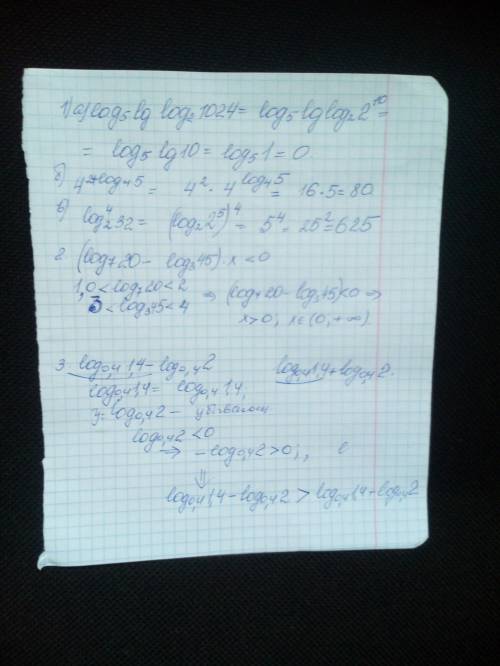 1) а) log₅ lg log₂ 1024 = log₅ lg log₂ 2¹⁰ =
= log₅ lg 10 = log₅ 1 = 0.
б) 4^(2+log₄5) = 4² · 4^(log₄5) = 16 · 5 = 80
в) log₂⁴ 32 = (log₂ 2⁵)⁴ = 5⁴ = 25² = 625
2. (log₇ 20 - log₃ 45) · x < 0
1,0 < log₇ 20 < 2
3 < log₃ 45 < 4 ⇒ (log₇ 20 - log₃ 45) < 0 ⇒
x > 0, x ∈ (0, +∞)
3. log₀,₄ 1,4 - log₀,₄ 2 log₀,₄ 1,4 + log₀,₄ 2.
log₀,₄ 1,4 = log₀,₄ 1,4,
y = log₀,₄ 2 -
log₀,₄ 2 < 0
⇒ - log₀,₄ 2 > 0;,
⇓
log₀,₄ 1,4 - log₀,₄ 2 > log₀,₄ 1,4 + log₀,₄ 2